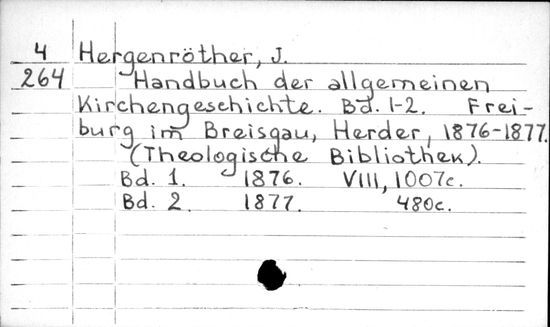 4 Hergenröther, J.
264 Handbuch der allgemeinen
Kirchengeschichte. Bd. 1-2. Frei-
burg im Breisgau, Herder, 1876-1877.
(Theologische Bibliothek).
Bd. 1. 1876. VIII, 1007c.
Bd. 2 1877. 480c.